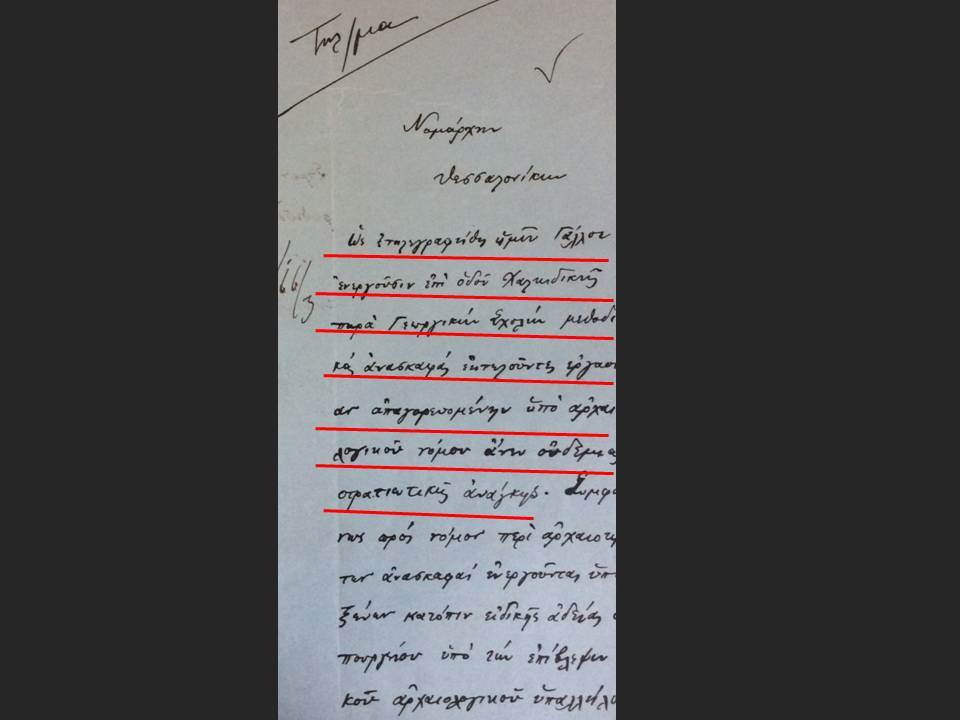 Τηλ/μα
Νομάρχην
Θεσσαλονίκην
Ὡς ἐτηλεγραφήθη ὑμῖν Γάλλοι
ἐνεργοῦσιν ἐπὶ ὁδοῦ Χαλκιδικῆς
παρὰ Γεωργικὴν Σχολὴν μεθοδι
κάς ἀνασκαφάς ἐκτελοῦντες ἐργασί
αν ἀπαγορευομένην ὑπὸ ἀρχαι
ολογικοῦ νόμου ἄνευ οὐδεμιᾶς
στρατιωτικῆς ἀνάγκης. Συμφώ
νως πρός νόμον περὶ ἀρχαιοτή
των ἀνασκαφαί ἐνεργοῦνται ὑπὸ
ξένων κατόπιν εἰδικῆς ἀδείας
πουργείου ὑπὸ τήν ἐπίβλεψιν
κοῦ ἀρχαιολογικοῦ ὑπαλλήλου